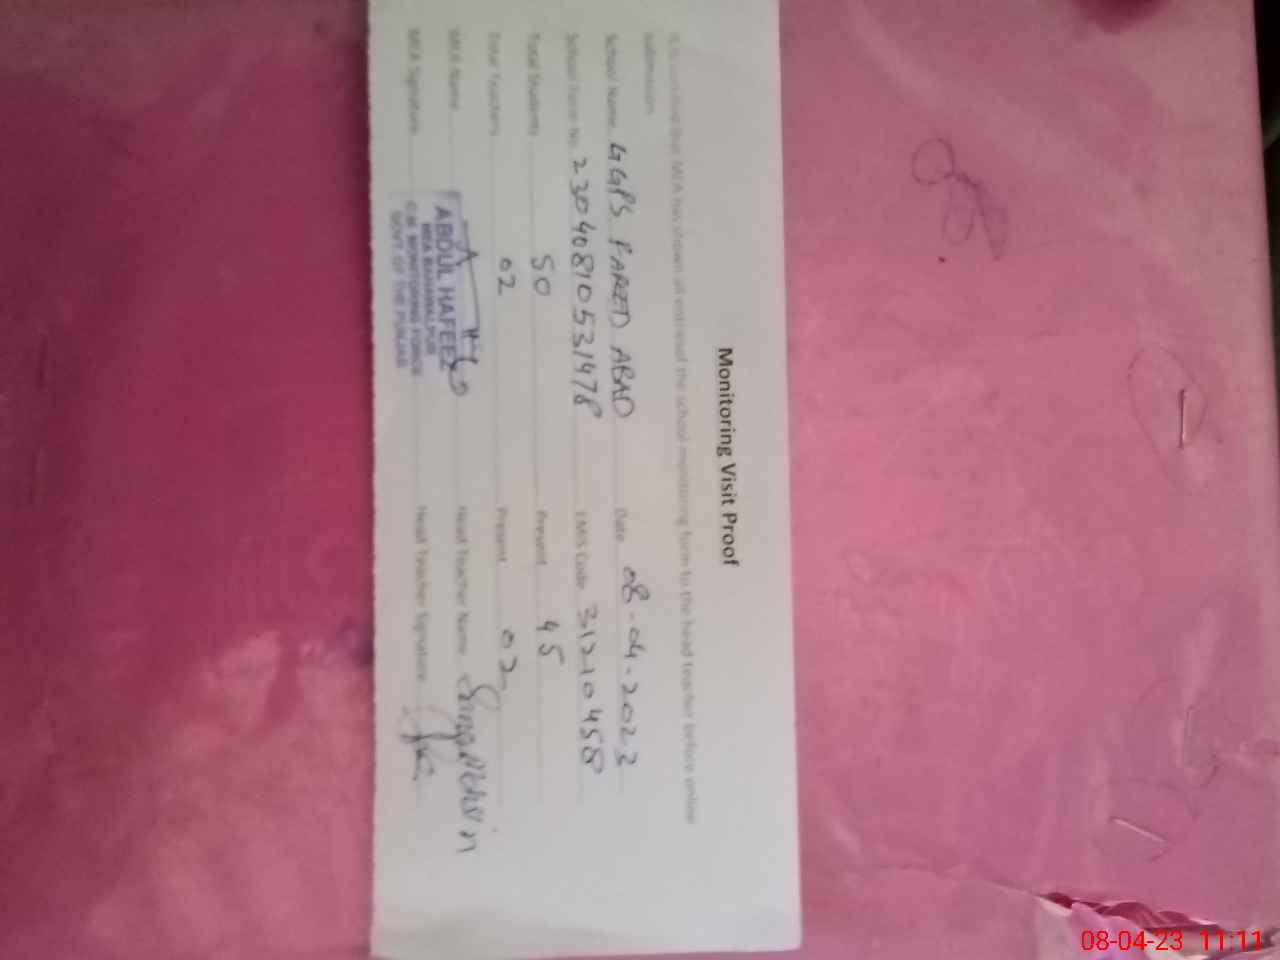 Monitoring Visit Proof
It is certified that MEA has shown all entries of the school monitoring form to the head teacher before online
submission
School Name GGPS FAREED ABAD Date 08-04-2023
School Form No. 23040810531478 EMIS Code 31210458
Total Students 50 Present 45
Total Teachers 02 Present 02
MEA Name Head Teacher Name
MEA Signature Head Teacher Signature
ABDUL HAFEEZ
MEA BAHAWALPUR
C.M. MONITORING FORCE
GOVT. OF THE PUNJAB
08-04-23 11:11